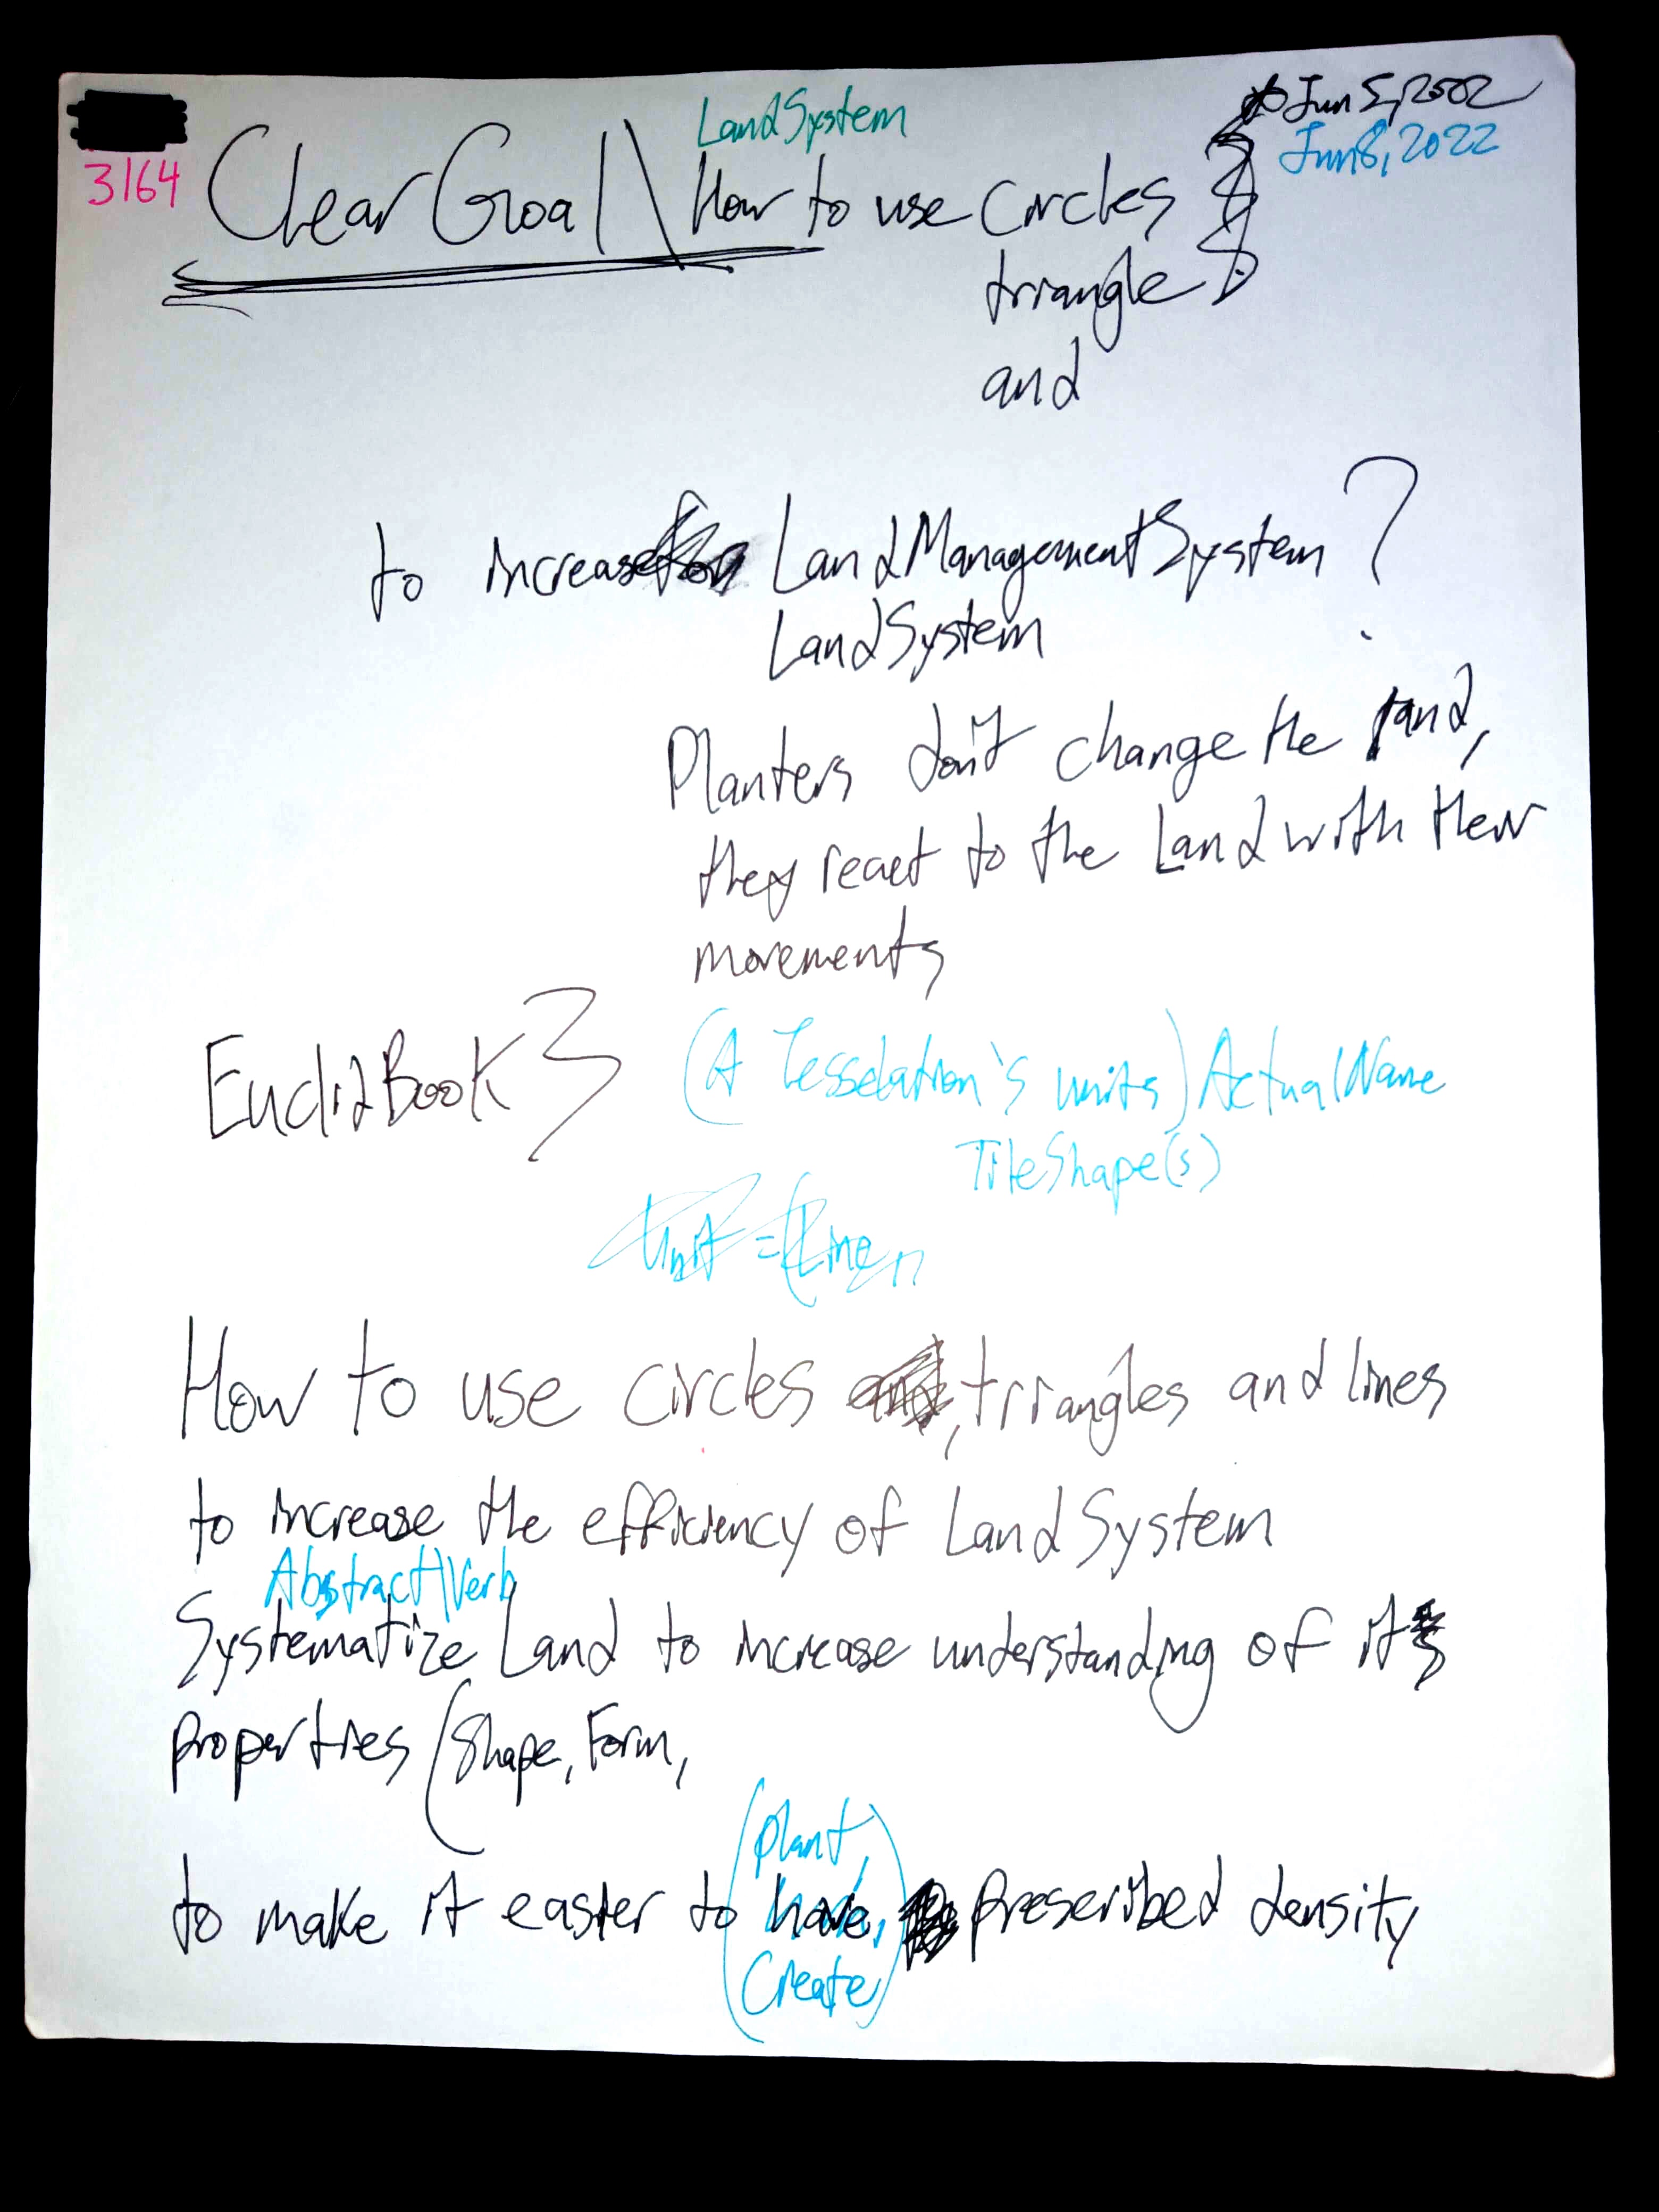 LandSystem
Jun 5, 2502
Jun 8, 2022
3164
ClearGoal\ How to use circles
triangle
and
to increase LandManagementSystem?
LandSystem
Planters don't change the land,
they react to the Land with their
movements
EuclidBook3
(A Tesselation's units) ActualName
TileShape(s)
Unit = (Line
How to use circles , triangles and lines
to increase the efficiency of LandSystem
Abstract\Verb
Systematize Land to increase understanding of its
properties (Shape, Form,
(plant,
to make it easier to have, prescribed density
Create)